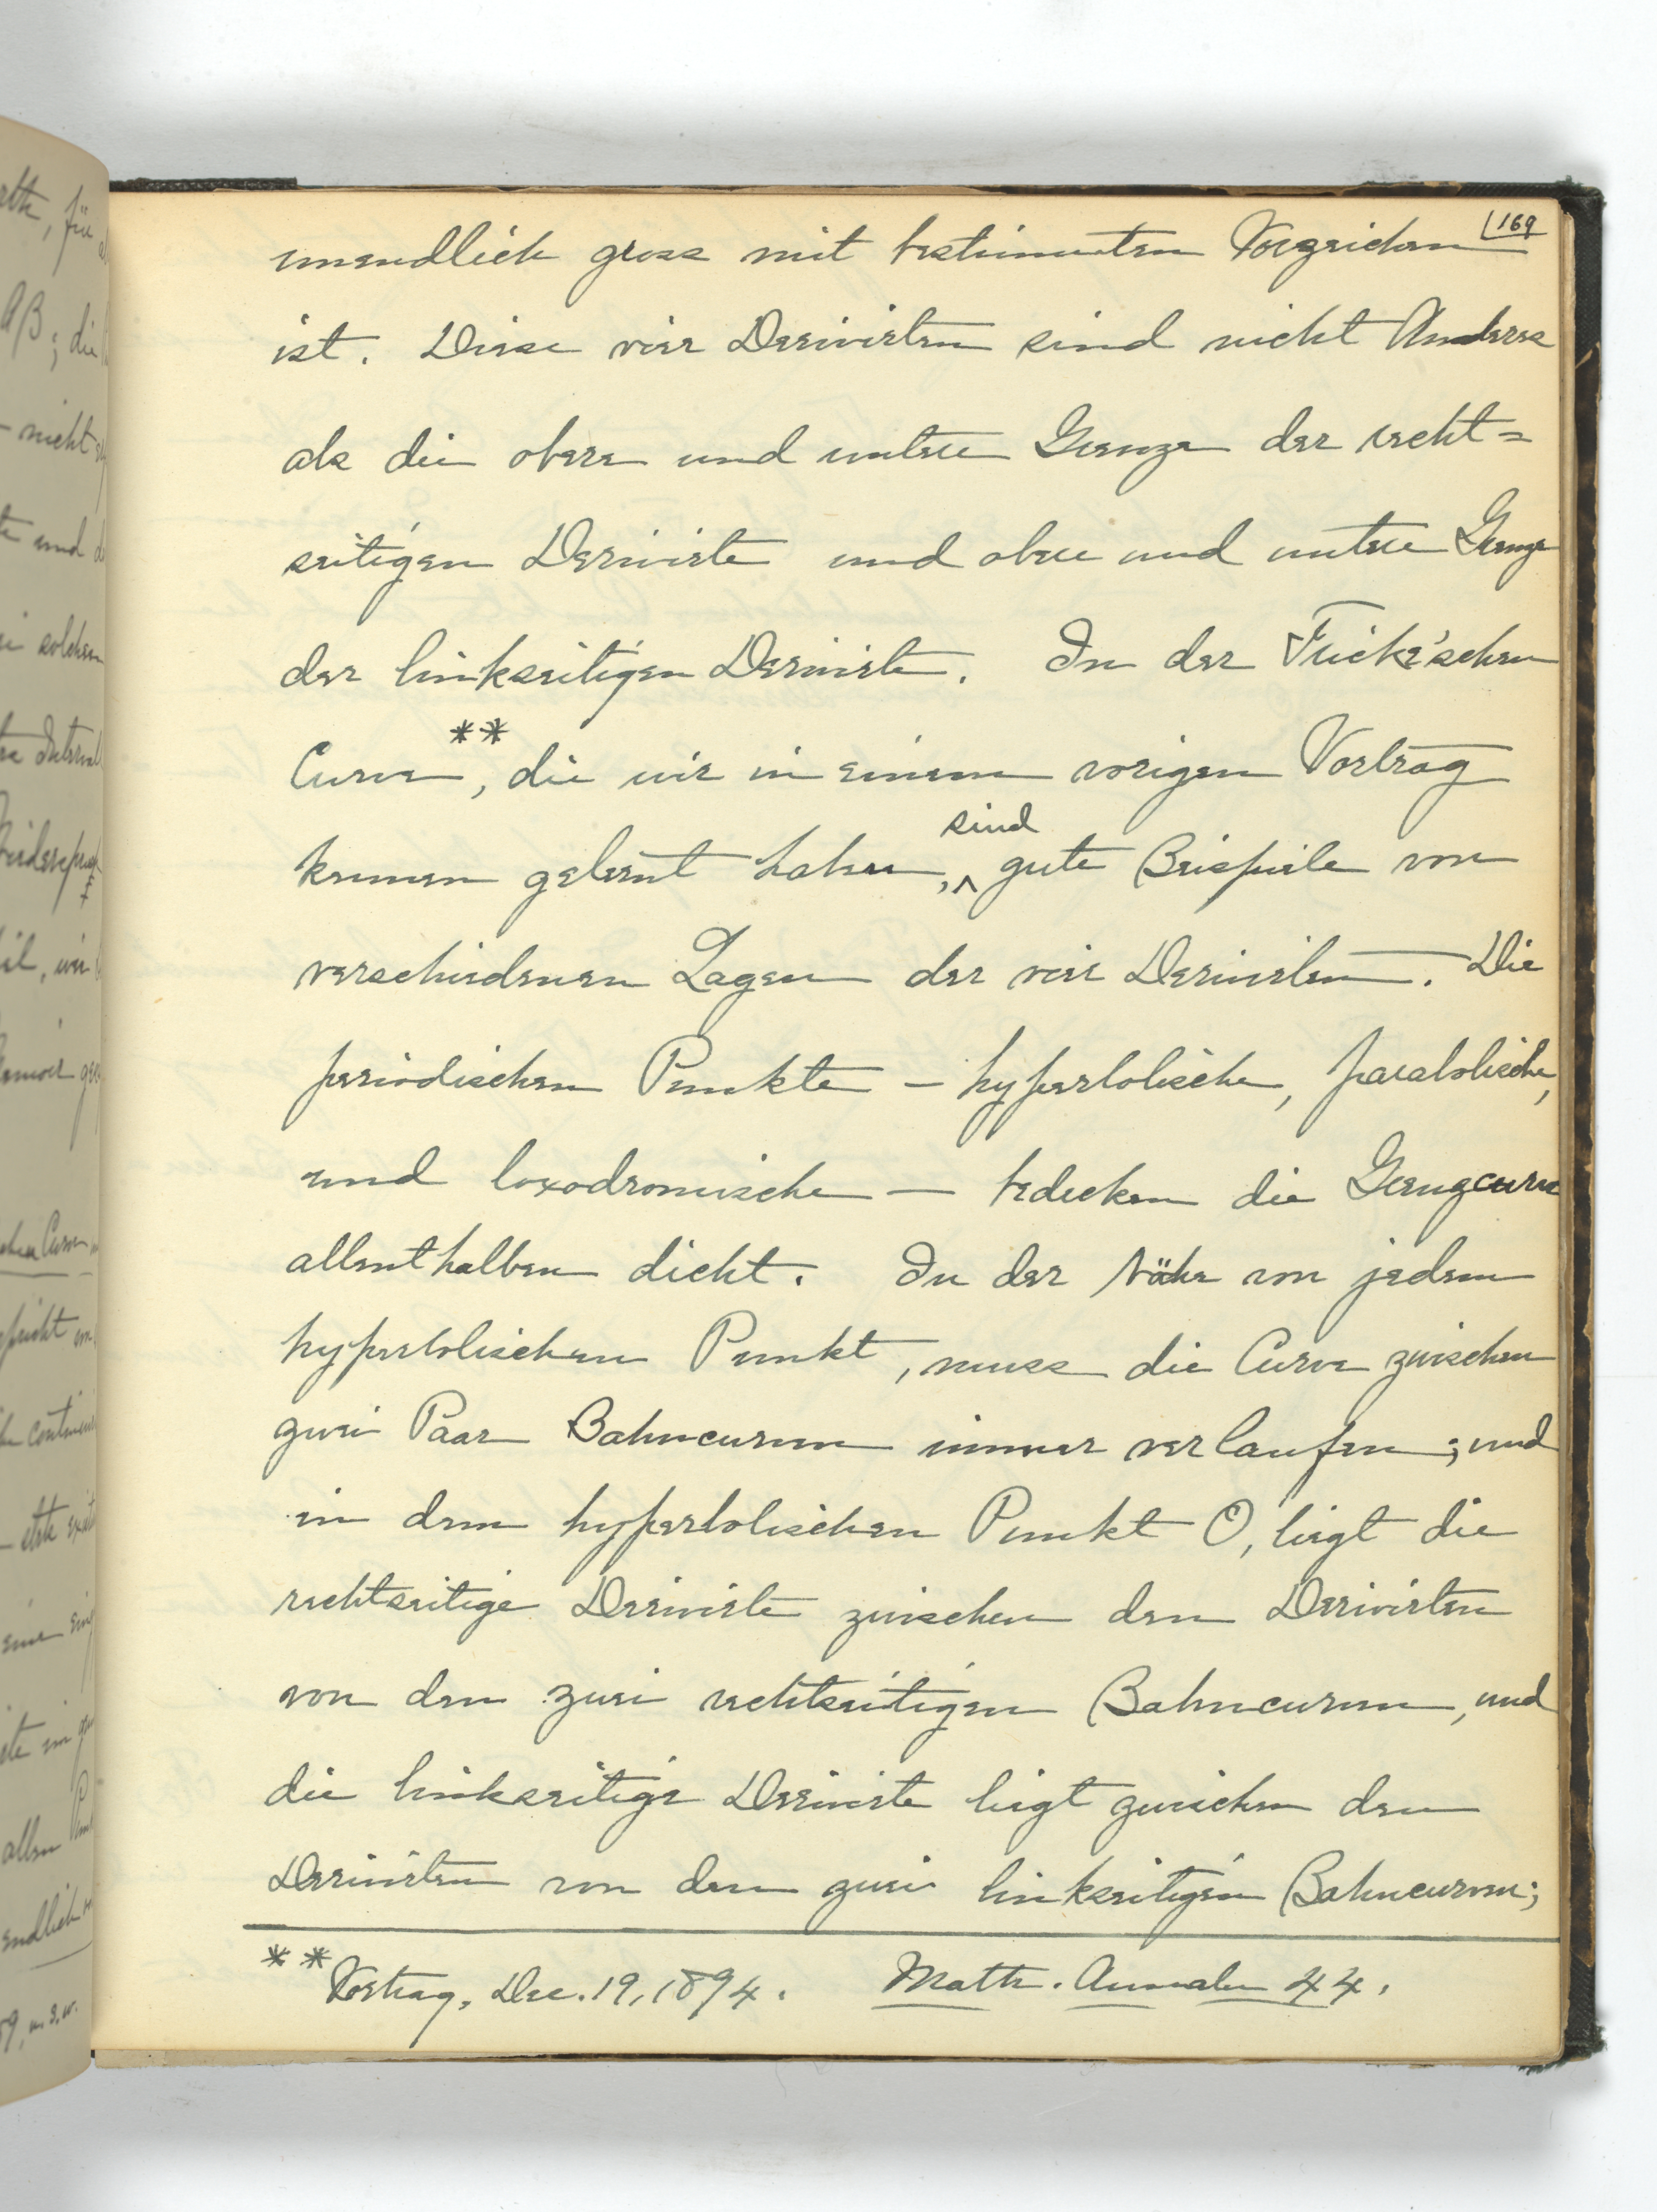 169
unendlich gross mit bestimmten Vorzeichen
ist. Diese vier Derivirten sind nicht Anderes
als die obere und untere Grenze der recht=
seitigen Derivirte und obere und untere Grenze
der linkseitigen Derivirte. In der Fricke'schen
Curve**, die wir in einem vorigen Vortrag
kennen gelernt haben, sind gute Beispiele von
verschiedenen Lagen der vier Derivirten. Die
periodischen Punkte — hyperbolische, parabolische,
und loxodromische — bedecken die Grenzcurve
allenthalben dicht. In der Nähe von jedem
hyperbolischen Punkt, muss die Curve zwischen
zwei Paar Bahncurven immer verlaufen; und
in dem hyperbolischen Punkt O, liegt die
rechtseitige Derivirte zwischen den Derivirten
von den zwei rechtseitigen Bahncurven, und
die linkseitige Derivirte liegt zwischen den
Derivirten von den zwei linkseitigen Bahncurven;
** Vortrag, Dec. 19, 1894. Math. Annalen 44.